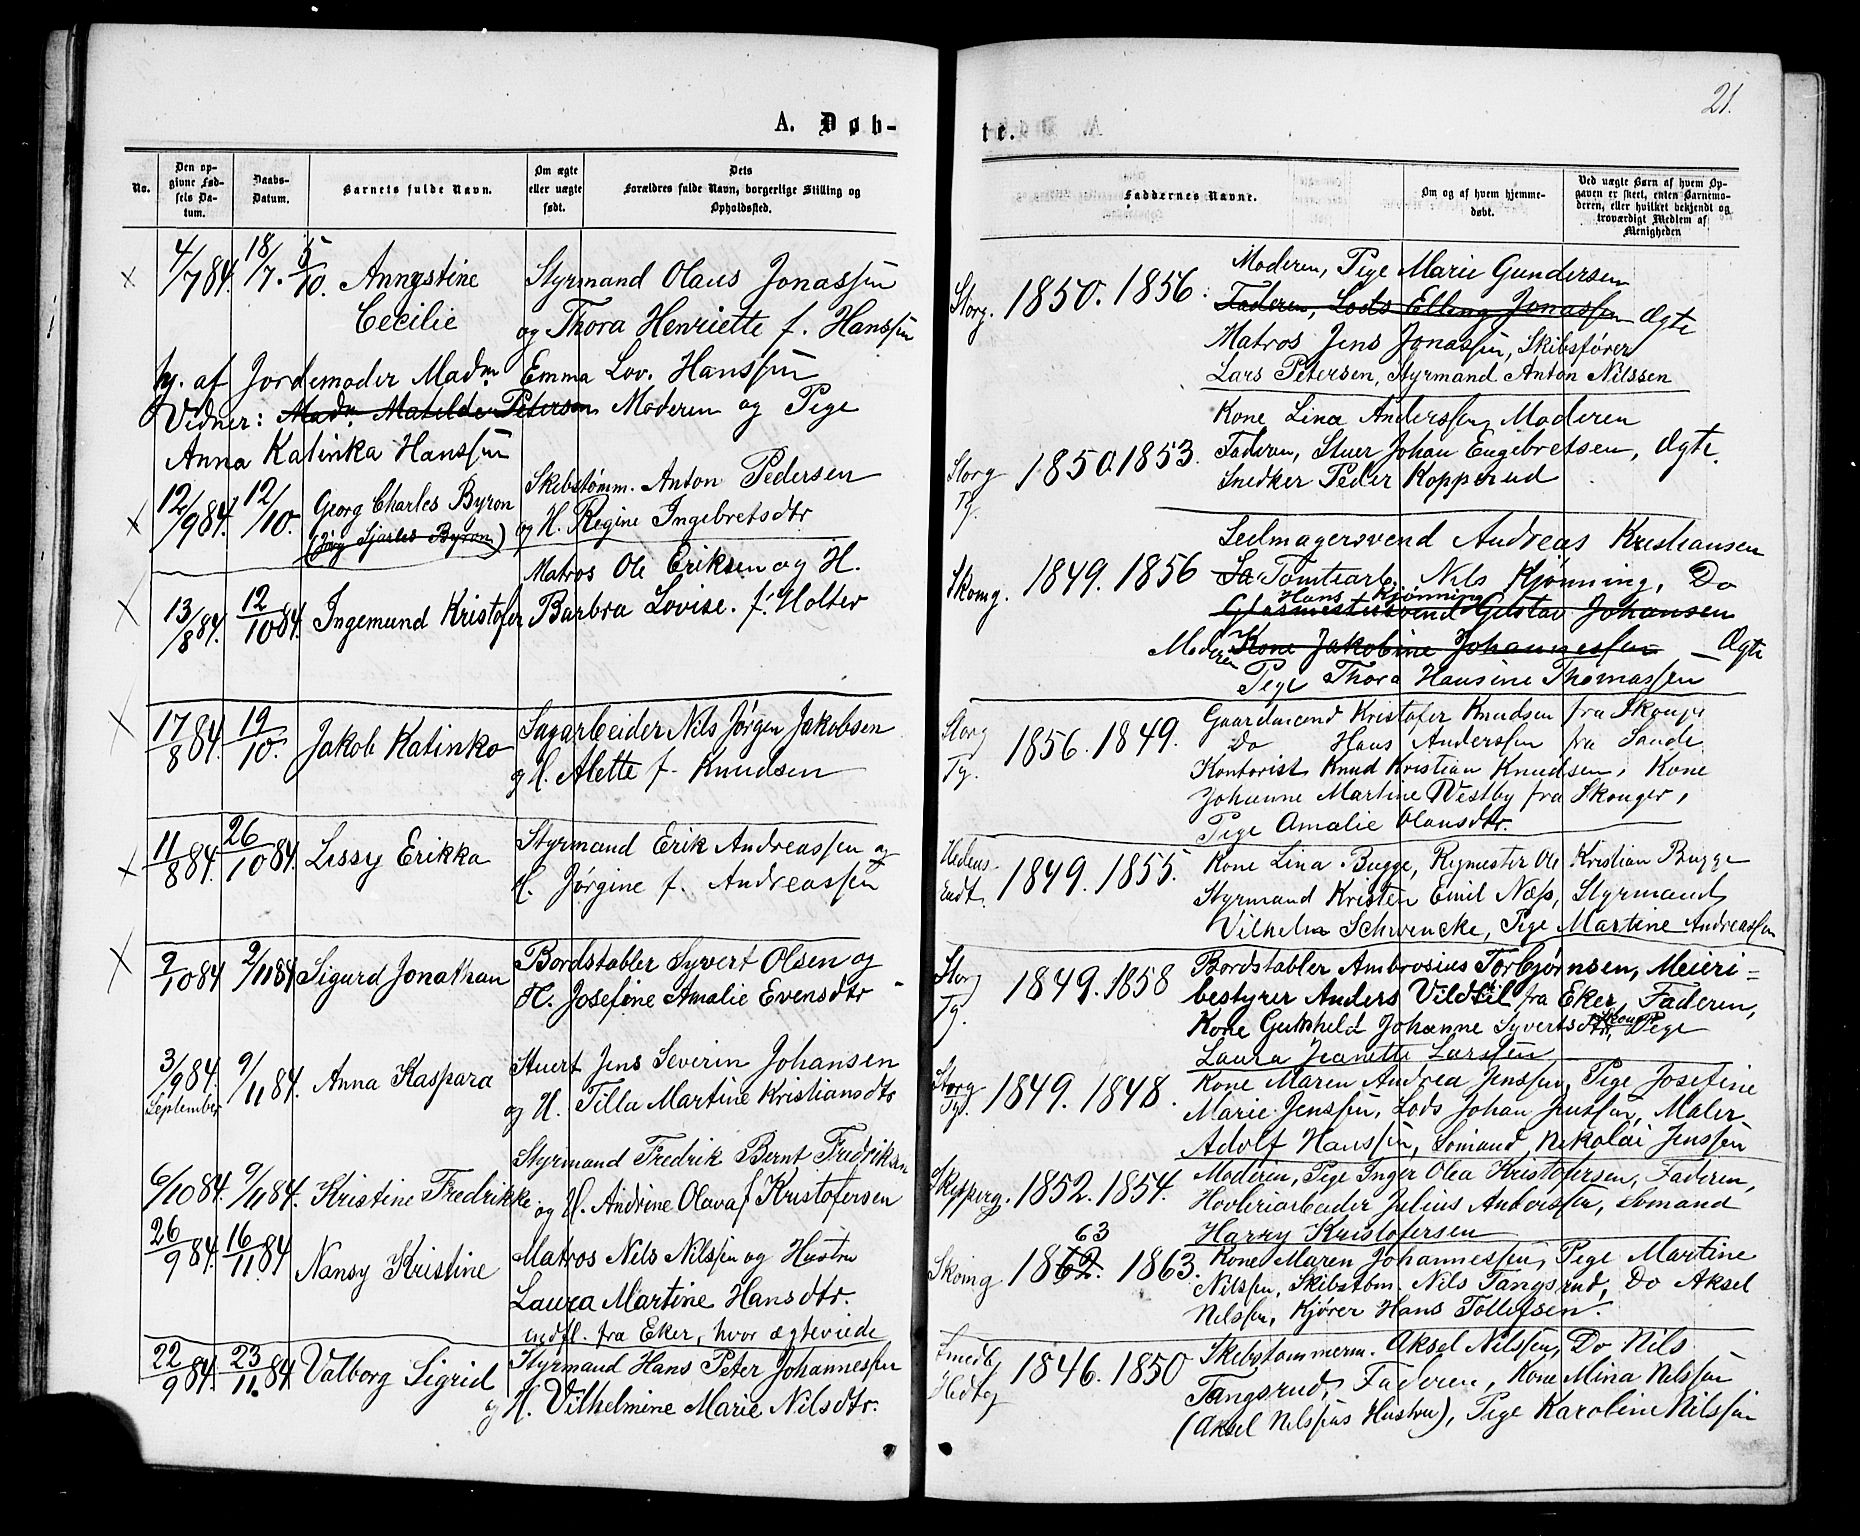 21.
A. Døb-
te.
No.
Den op-
givne Fød-
sels Da-
tum.
Daabs-
Datum.
Barnets fulde Navn.
Om ægte
eller uægte
født.
Dets
Forældres fulde Navn, borgerlige Stilling og
Opholdssted.
Faddernes Navne.
Om og af hvem hjemme-
døbt.
Ved uægte Børn af hvem Op-
gaven er skeet, enten Barnemo-
deren, eller hvilket bekjendt og
troværdigt Medlem af
Menigheden
4/7 84. 18/7. 5/10. Annystine
Cecilie
Styrmand Olaus Jonassen
og Thora Henriette f. Hanssen
hj. af Jordemoder Madm Emma Lov. Hanssen
Vidner: Madm. Matilde Peterson Moderen og Pige
Anna Katinka Hanssen
Storg. 1850. 1856.
Moderen, Pige Marie Gundersen
Faderen, Lods Elling Jonassen Ægte
Matros Jens Jonassen, Skibsfører
Lars Petersen, Styrmand Anton Nilssen
12/9 84. 12/10. Georg Charles Byron
(Jørg Sjarles Byron)
Skibstømm. Anton Pedersen
og H. Regine Ingebretsdtr
Storg
Tg. 1850. 1853.
Kone Lina Anderssen, Moderen
Faderen, Stuer Johan Engebretsen, Ægte.
Snedker Peder Kopperud
13/8 84. 12/10 84. Ingemund Kristofer
Matros Ole Eriksen og H.
Barbra Lovise. f. Holter
Skomg. 1849. 1856
Seilmagersvend Andreas Kristiansen
Tomtearb. Nils Kjønning, Do
Hans Kjønning
Glasmestersvend Gustav Johansen
Moderen Kone Jakobine Johannessen Ægte
Pige Thora Hansine Thomassen
17/8 84. 19/10. Jakob Katinko
Sagarbeider Nils Jørgen Jakobsen
og H. Alette f. Knudsen
Storg
Tg. 1856. 1849.
Gaardmand Kristofer Knudsen fra Skouger
Do Hans Anderssen fra Sande
Kontorist Knud Kristian Knudsen, Kone
Johanne Martine Westby fra Skouger,
Pige Amalie Olausdtr.
11/8 84. 26/10 84. Lissy Erikka
Styrmand Erik Andreassen og
H. Jørgine f. Andreassen
1849. 1855.
Kone Lina Bugge, Rigmester Ole Kristian Bugge
Styrmand Kristen Emil Næss, Styrmand
Vilhelm Schwencke, Pige Martine Andreassen
9/10 84 2/11 84 Sigurd Jonathan
Bordstabler Syvert Olsen og
H. Josefine Amalie Evensdtr
Storg
Tg. 1849. 1858
Bordstabler Ambrosius Torbjørnsen, Meieri=
bestyrer Anders Vildtil fra Eker, Faderen,
Kone Gunhild Johanne Syvertsdtr, Skouger Pige
Laura Jeanette Larssen
3/9 84.
September
9/11 84. Anna Kaspara
Stuert Jens Severin Johansen
og H. Tilla Martine Kristiansdtr
Storg
Tg. 1849. 1848.
Kone Maren Andrea Jenssen, Pige Josefine
Marie Jenssen, Lods Johan Jenssen, Maler
Adolf Hanssen, Sømand Nikolai Jenssen
6/10 84. 9/11 84. Kristine Fredrikke
Styrmand Fredrik Bernt Fredriksen
og H. Andrine Olava f. Kristofersen
Skipperg. 1852. 1854.
Moderen, Pige Inger Olea Kristofersen, Faderen,
Høvleriarbeider Julius Anderssen, Sømand
Harry Kristofersen
26/9 84. 16/11. 84 Nansy Kristine
Matros Nils Nilssen og Hustru
Laura Martine Hansdtr.
indfl. fra Eker, hvor ægteviede
Skomg 1862. 63 1863.
Kone Maren Johannessen, Pige Martine
Nilssen, Skibstøm. Nils Tangsrud, Do Aksel
Nilssen, Kjører Hans Tollefsen.
22/9 84. 23/11. 84 Valborg Sigrid
Styrmand Hans Peter Johannessen
og H. Vilhelmine Marie Nilsdtr.
1846. 1850
Skibstømmerm. Aksel Nilssen, Do Nils
Tangsrud, Faderen, Kone Mina Nilssen
(Aksel Nilssens Hustru), Pige Karoline Nilssen